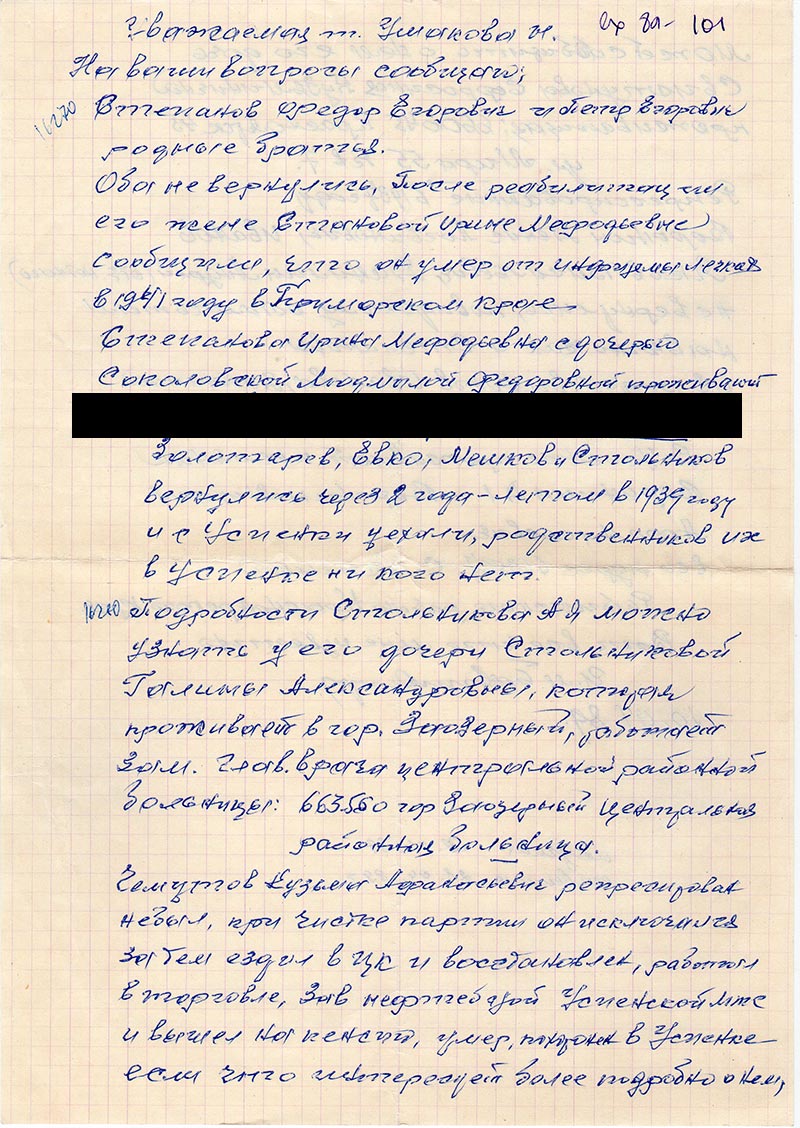 Уважаемая т. Ушакова Н.
вх 89- 101
На ваши вопросы сообщаю;
16270
Степанов Федор Егорович и Петр Егорович
родные братья.
Оба не вернулись, После реабилитации
его жене Стпановой Ирине Мефодьевне
сообщили, что он умер от инфиземы легких
в 1941 году в Приморском крае
Степанова Ирина Мефодьевна с дочерью
Соколовской Людмылой Федоровной проживают
Золотарев, Евко, Мешков и Стольников
вернулись через 2 года – летом в 1939 году
и с Успенки уехали, родственников их
в успенке ни кого нет.
16260
Подробности Стольникова А Я можно
узнать у его дочери Стольниковой
Галины Александровны, которая
проживает в гор. Заозерный, работает
Зам. глав. врача центральной районной
больницы: 663560 гор Заозерный Центральная
районная больница.
Кузьма Афанасьевич репресирован
небыл, при чистке партии он исключался
затем ездил в ЦК и восстановлен, работал
в торговле, Зав нефтебазой Успенской мтс
и вышел на пенсию, умер, похоронен в Успенке
если что интересует более подробно о нем,